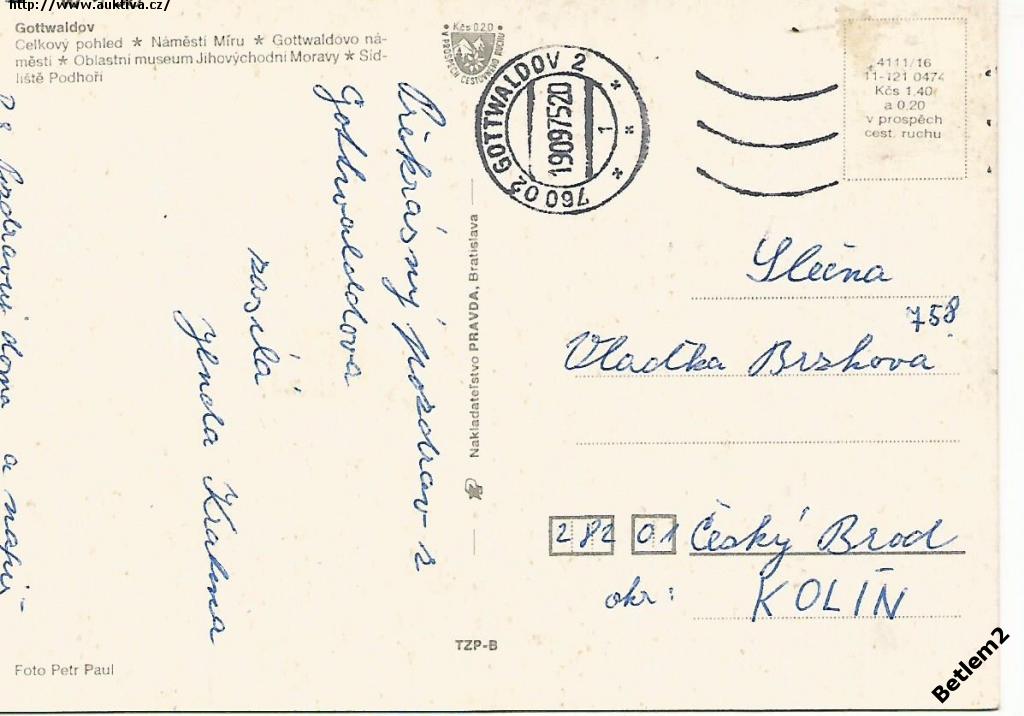 http://www.auktiva.cz/
Gottwaldov
Celkový pohled * Náměstí Míru * Gottwaldovo ná-
městí * Oblastní museum Jihovýchodní Moravy * Síd-
liště Podhoří
Kčs 0.20
V PROSPĚCH CESTOVNÍHO RUCHU
760 02 GOTTWALDOV 2
19097520
1
4111/16
11-121 0474
Kčs 1,40
a 0.20
v prospěch
cest. ruchu
Překrásný pozdrav z
Gottwaldova
zasílá
Jenda
P.S. Pozdravuj doma a napiš-
Nakladateľstvo PRAVDA, Bratislava
Slečna
758
Vlaďka Brzkova
282 01 Český Brod
okr: KOLÍN
TZP-B
Foto Petr Paul
Betlem2